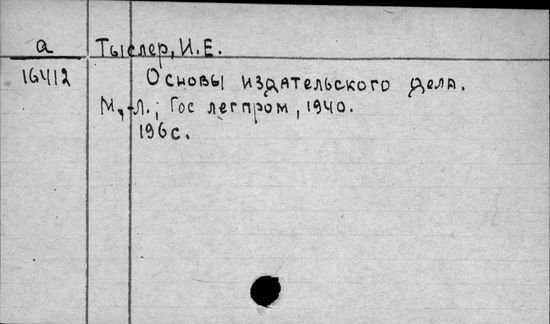 а
16412
Тыслер, И.Е.
Основы издательского дела.
М.-Л., Гос легпром, 1940.
196с.